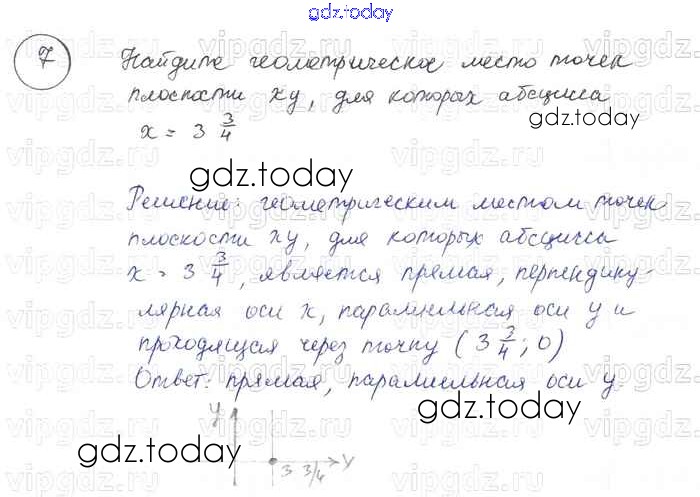 gdz.today
7 Найдите геометрическое место точек
плоскости xy, для которых абсцисса
x = 3 3/4
gdz.today
gdz.today
Решение: геометрическим местом точек
плоскости xy, для которых абсцисса
x = 3 3/4, является прямая, перпендику-
лярная оси x, параллельная оси y и
проходящая через точку (3 3/4; 0)
Ответ: прямая, параллельная оси y.
gdz.today
y
gdz.today
3 3/4 y